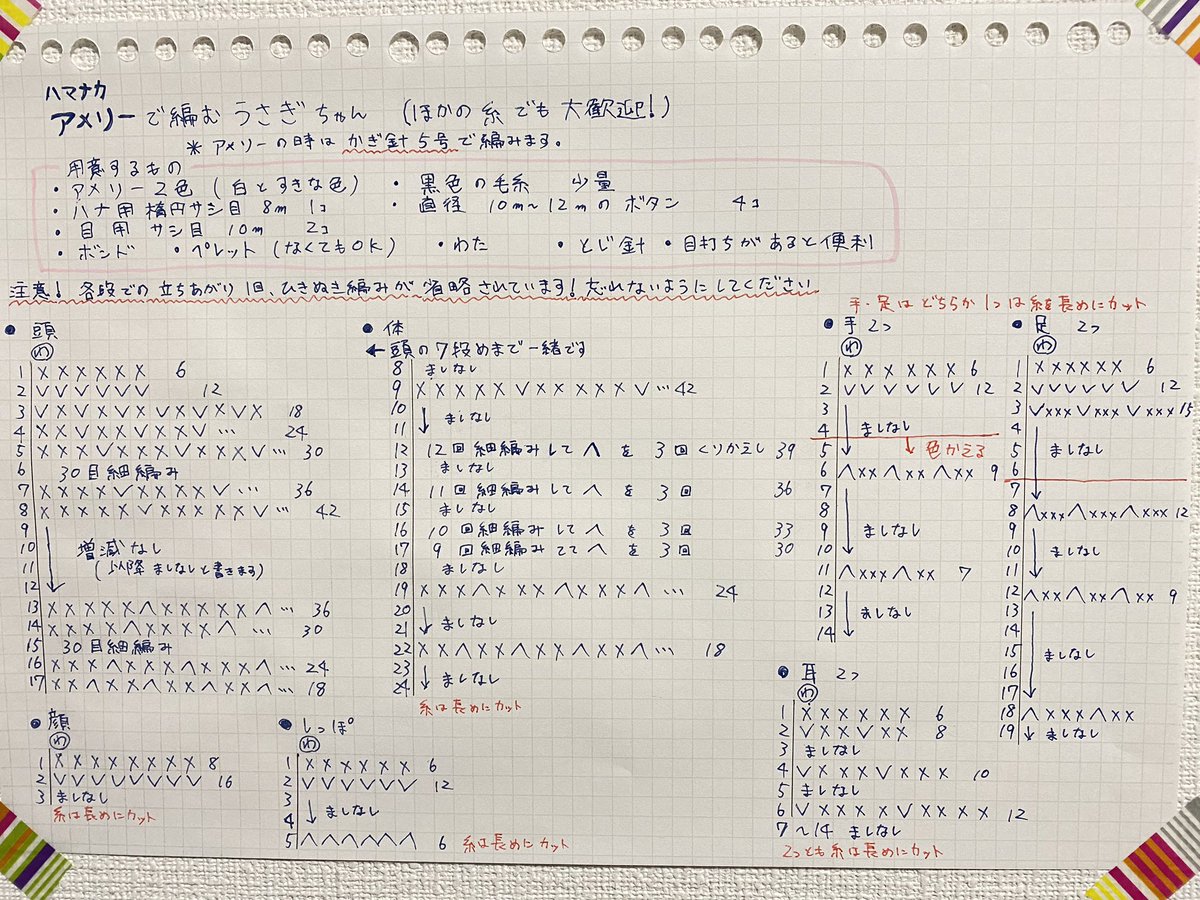 ハマナカ
アメリーで編む うさぎちゃん (ほかの糸でも大歓迎!)
* アメリーの時は かぎ針5号で編みます。
用意するもの
・アメリー2色 (白とすきな色) ・黒色の毛糸 少量
・ハナ用楕円サシ目 8m 1コ ・直径 10m~12mのボタン 4コ
・目用 サシ目 10m 2コ
・ボンド ・ペレット(なくてもOK) ・わた ・とじ針 ・目打ちがあると便利
注意! 各段での立ちあがり1回、ひきぬき編みが省略されています! 忘れないようにしてください
● 頭
わ
1 XXXXXX 6
2 VVVVVV 12
3 VXVXVXVXVXVX 18
4 XXVXXVXXV… 24
5 XXXVXXXVXXXV… 30
6 30目細編み
7 XXXXVXXXXV… 36
8 XXXXXVXXXXXV… 42
9
10 増減なし
11 (以降ましなしと書きます)
12
13 XXXXX∧XXXXX∧… 36
14 XXXX∧XXXX∧… 30
15 30目細編み
16 XXX∧XXX∧XXX∧… 24
17 XX∧XX∧XX∧XX∧… 18
● 体
← 頭の7段めまで一緒です
8 ましなし
9 XXXXXVXXXXXV…42
10
11 ましなし
12 12回細編みして∧を3回くりかえし 39
13 ましなし
14 11回細編みして∧を3回 36
15 ましなし
16 10回細編みして∧を3回 33
17 9回細編みてて∧を3回 30
18 ましなし
19 XXX∧XXX∧XXX∧… 24
20
21 ましなし
22 XX∧XX∧XX∧XX∧… 18
23
24 ましなし
糸は長めにカット
手・足はどちらか1つは糸を長めにカット
● 手 2つ
わ
1 XXXXXX 6
2 VVVVVV 12
3
4 ましなし
5 色かえる
6 ∧XX∧XX∧XX 9
7
8
9 ましなし
10
11 ∧XXX∧XX 7
12
13 ましなし
14
● 足 2つ
わ
1 XXXXXX 6
2 VVVVVV 12
3 VXXXVXXXVXXX 15
4
5 ましなし
6
7
8 ∧XXX∧XXX∧XXX 12
9
10 ましなし
11
12 ∧XX∧XX∧XX 9
13
14
15 ましなし
16
17
18 ∧XXX∧XX
19 ましなし
● 顔
わ
1 XXXXXXXX 8
2 VVVVVVVV 16
3 ましなし
糸は長めにカット
● しっぽ
わ
1 XXXXXX 6
2 VVVVVV 12
3
4 ましなし
5 ∧∧∧∧∧∧ 6 糸は長めにカット
● 耳 2つ
わ
1 XXXXXX 6
2 VXXVXX 8
3 ましなし
4 VXXXVXXX 10
5 ましなし
6 VXXXXVXXXX 12
7~14 ましなし
2つとも糸は長めにカット